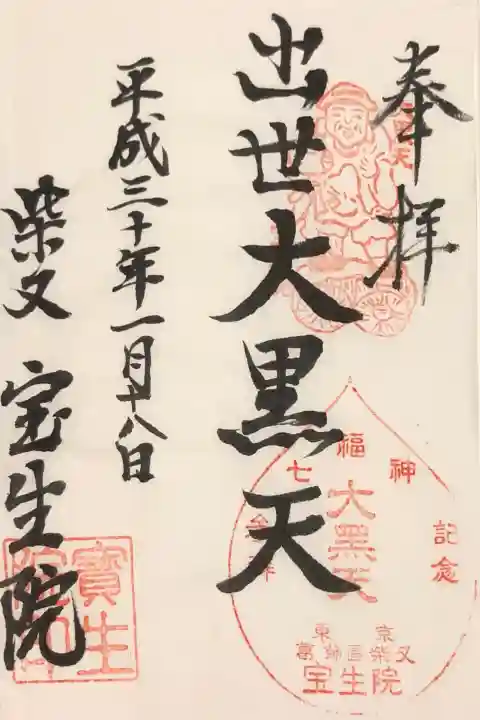 奉拝
大黒天
出世大黒天
平成三十年一月十八日
柴又 宝生院
七福神
記念
大黒天
東京
葛飾区柴又
宝生院
寶生
院印